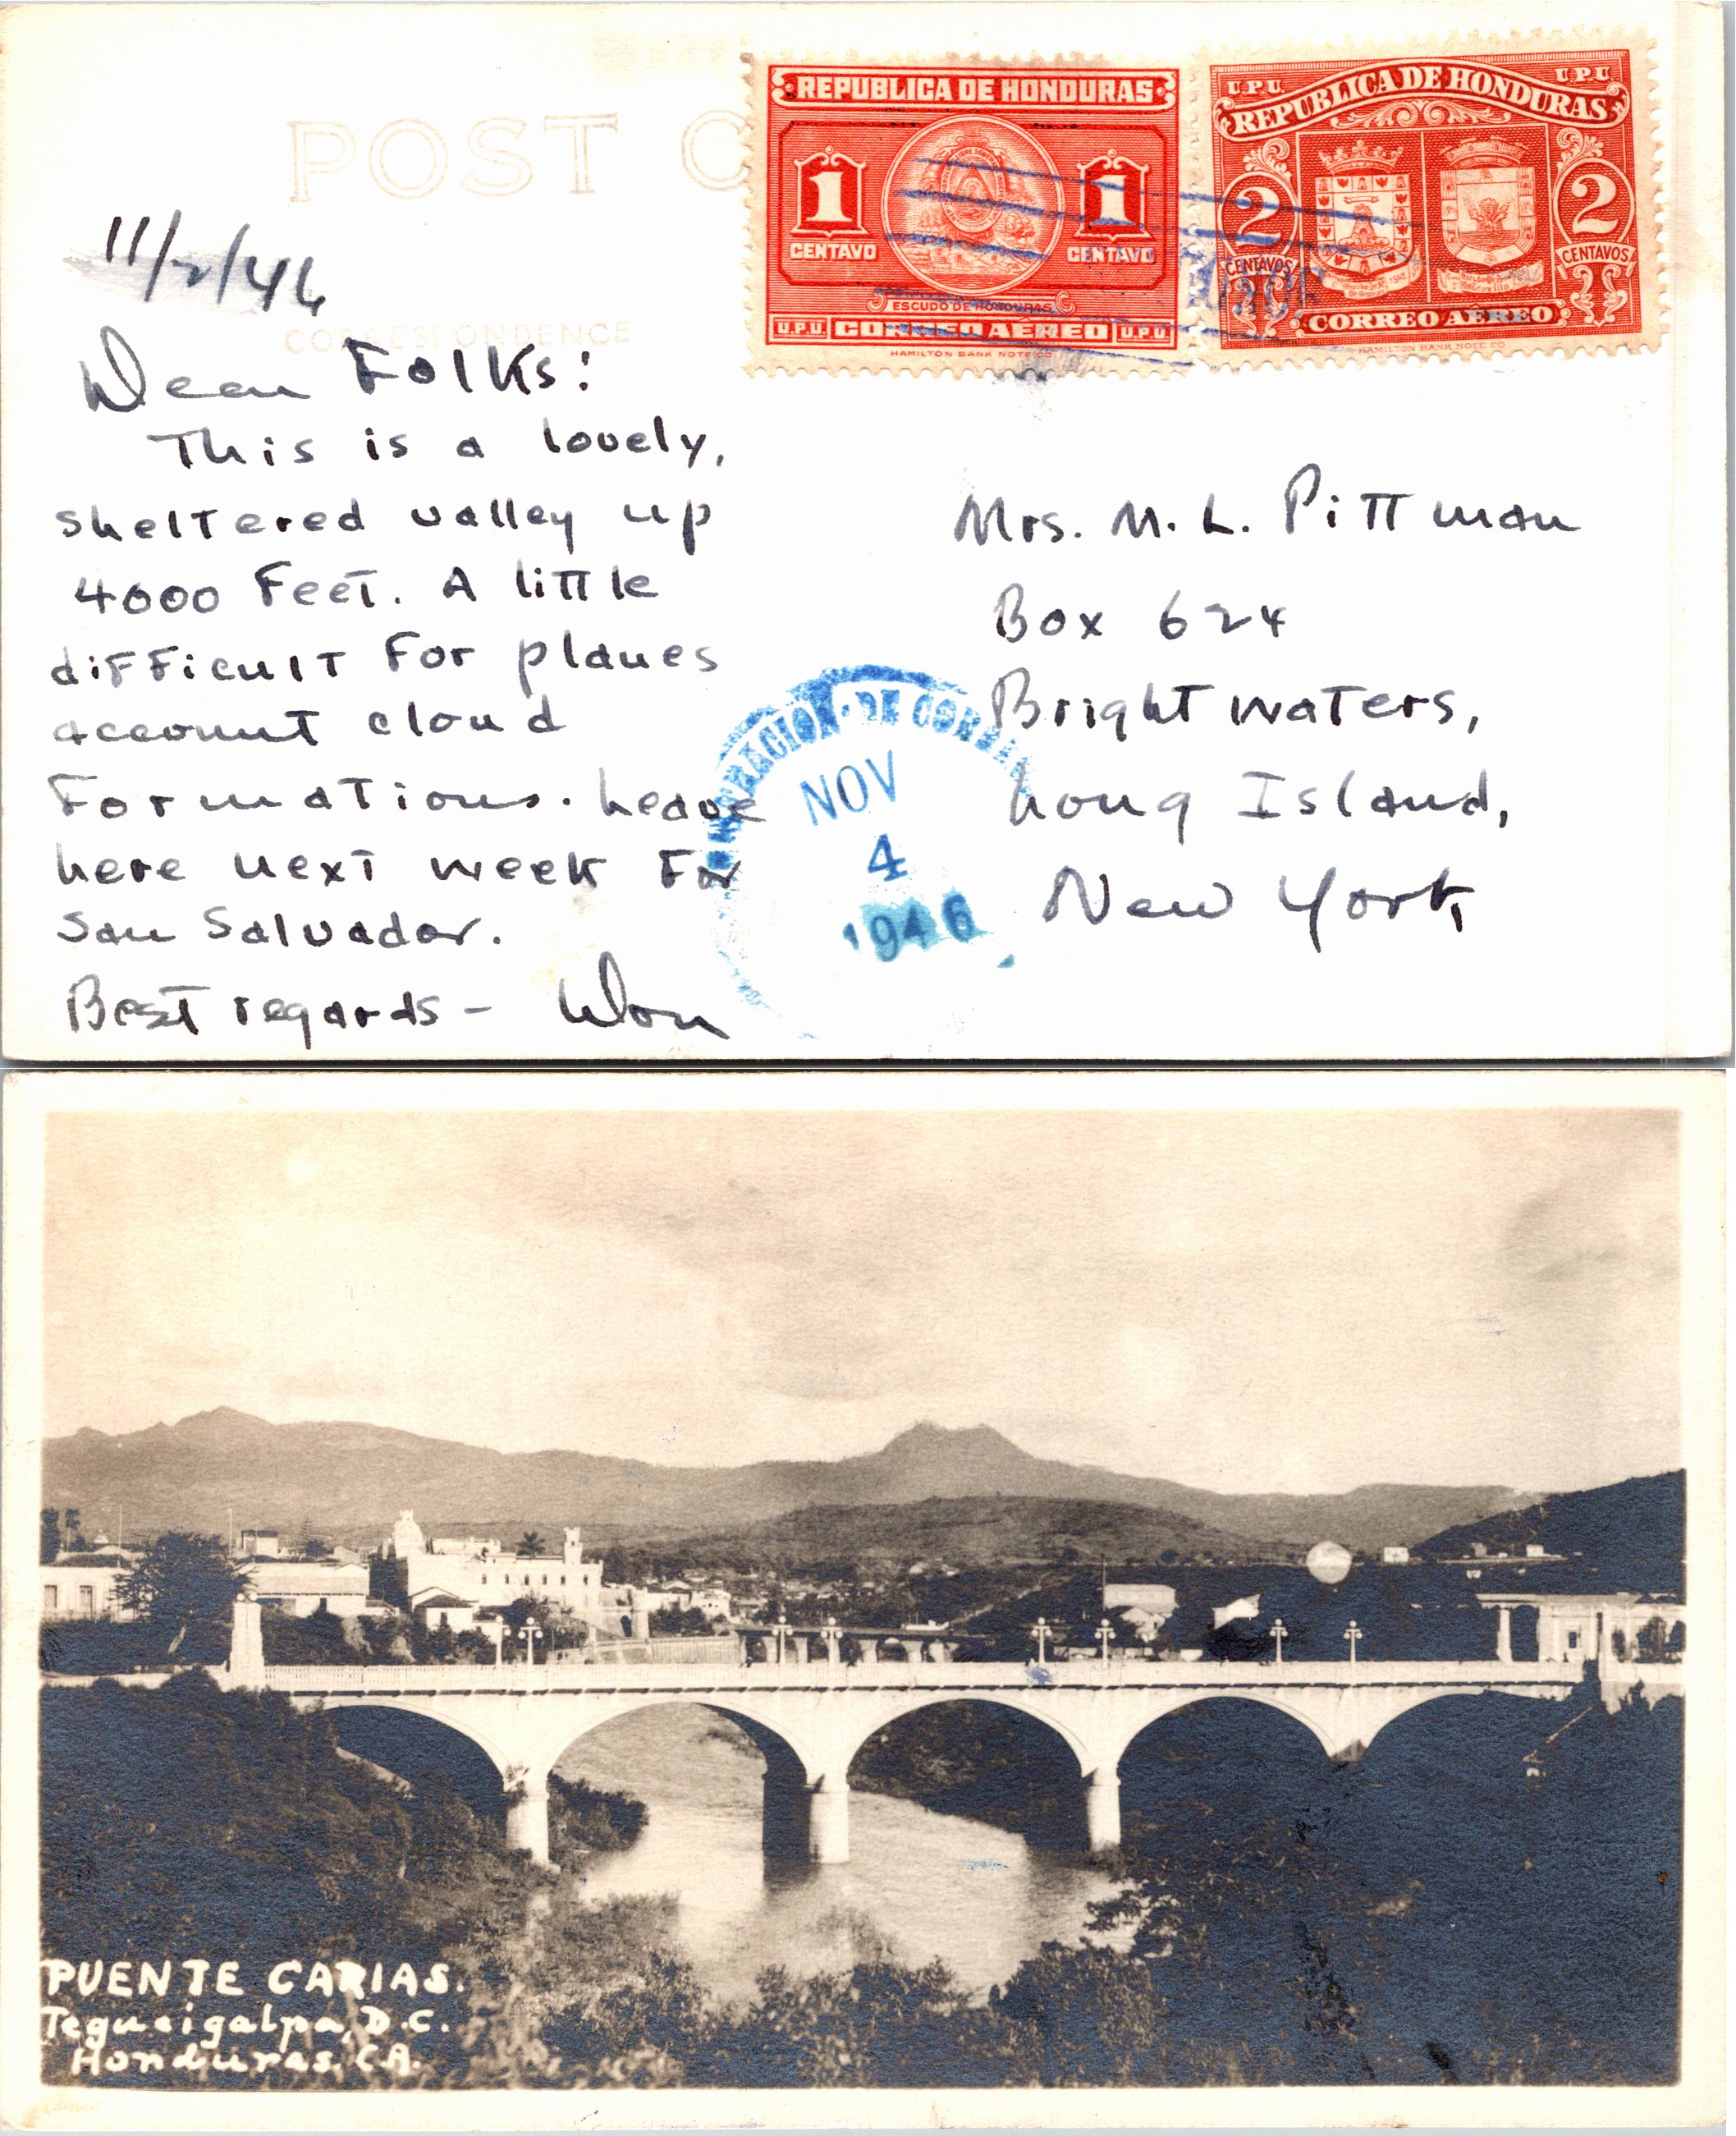 POST C
REPUBLICA DE HONDURAS
1 1
CENTAVO CENTAVO
ESCUDO DE HONDURAS
U.P.U. CORREO AEREO U.P.U.
HAMILTON BANK NOTE CO
U.P.U U.P.U
REPUBLICA DE HONDURAS
2 2
CENTAVOS CENTAVOS
CORREO AÉREO
HAMILTON BANK NOTE CO
11/2/46
CORRESPONDENCE
Dear Folks:
This is a lovely,
sheltered valley up
4000 Feet. A little
difficult for planes
account cloud
Formations. Leave
here next week for
San Salvador.
Best regards - Don
DE
NOV
4
1946
Mrs. M. L. Pittman
Box 624
Brightwaters,
Long Island,
New York
PUENTE CARIAS.
Tegucigalpa, D.C.
Honduras. C.A.